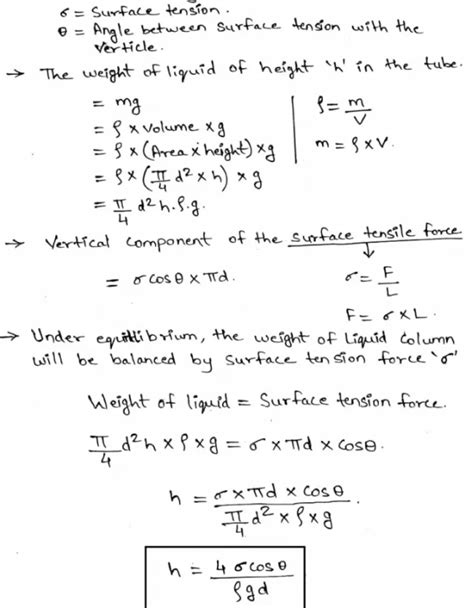 σ = Surface tension.
θ = Angle between surface tension with the
verticle.
→ The weight of liquid of height 'h' in the tube.
= mg
= ρ × volume × g
= ρ × (Area × height) × g
= ρ × (π/4 d² × h) × g
= π/4 d² h. ρ. g.
ρ = m/V
m = ρ × V.
→ Vertical component of the surface tensile force
= σ cosθ × πd.
σ = F/L
F = σ × L.
→ Under equilibrium, the weight of Liquid column
will be balanced by surface tension force 'σ'
Weight of liquid = Surface tension force.
π/4 d² h × ρ × g = σ × πd × cosθ.
h = σ × πd × cosθ / π/4 d² × ρ × g.
h = 4 σ cosθ / ρgd